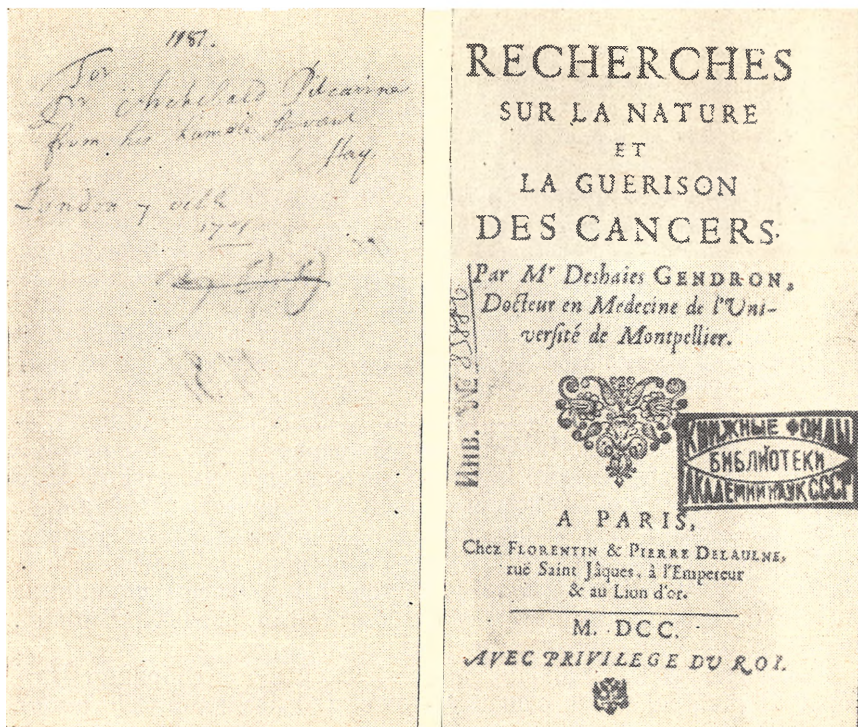 1181.
For
Dr Archibald Pitcairne
from his humble servant
Hay
London 7
1701
RECHERCHES
SUR LA NATURE
ET
LA GUERISON
DES CANCERS.
Par Mr Deshaies GENDRON,
Docteur en Medecine de l'Uni-
versité de Montpellier.
Инв. № 85880
КНИЖНЫЕ ФОНДЫ
БИБЛИОТЕКИ
АКАДЕМИИ НАУК СССР
A PARIS,
Chez FLORENTIN & PIERRE DELAULNE,
ruë Saint Jâques, à l'Empereur
& au Lion d'or.
M. DCC.
AVEC PRIVILEGE DU ROI.